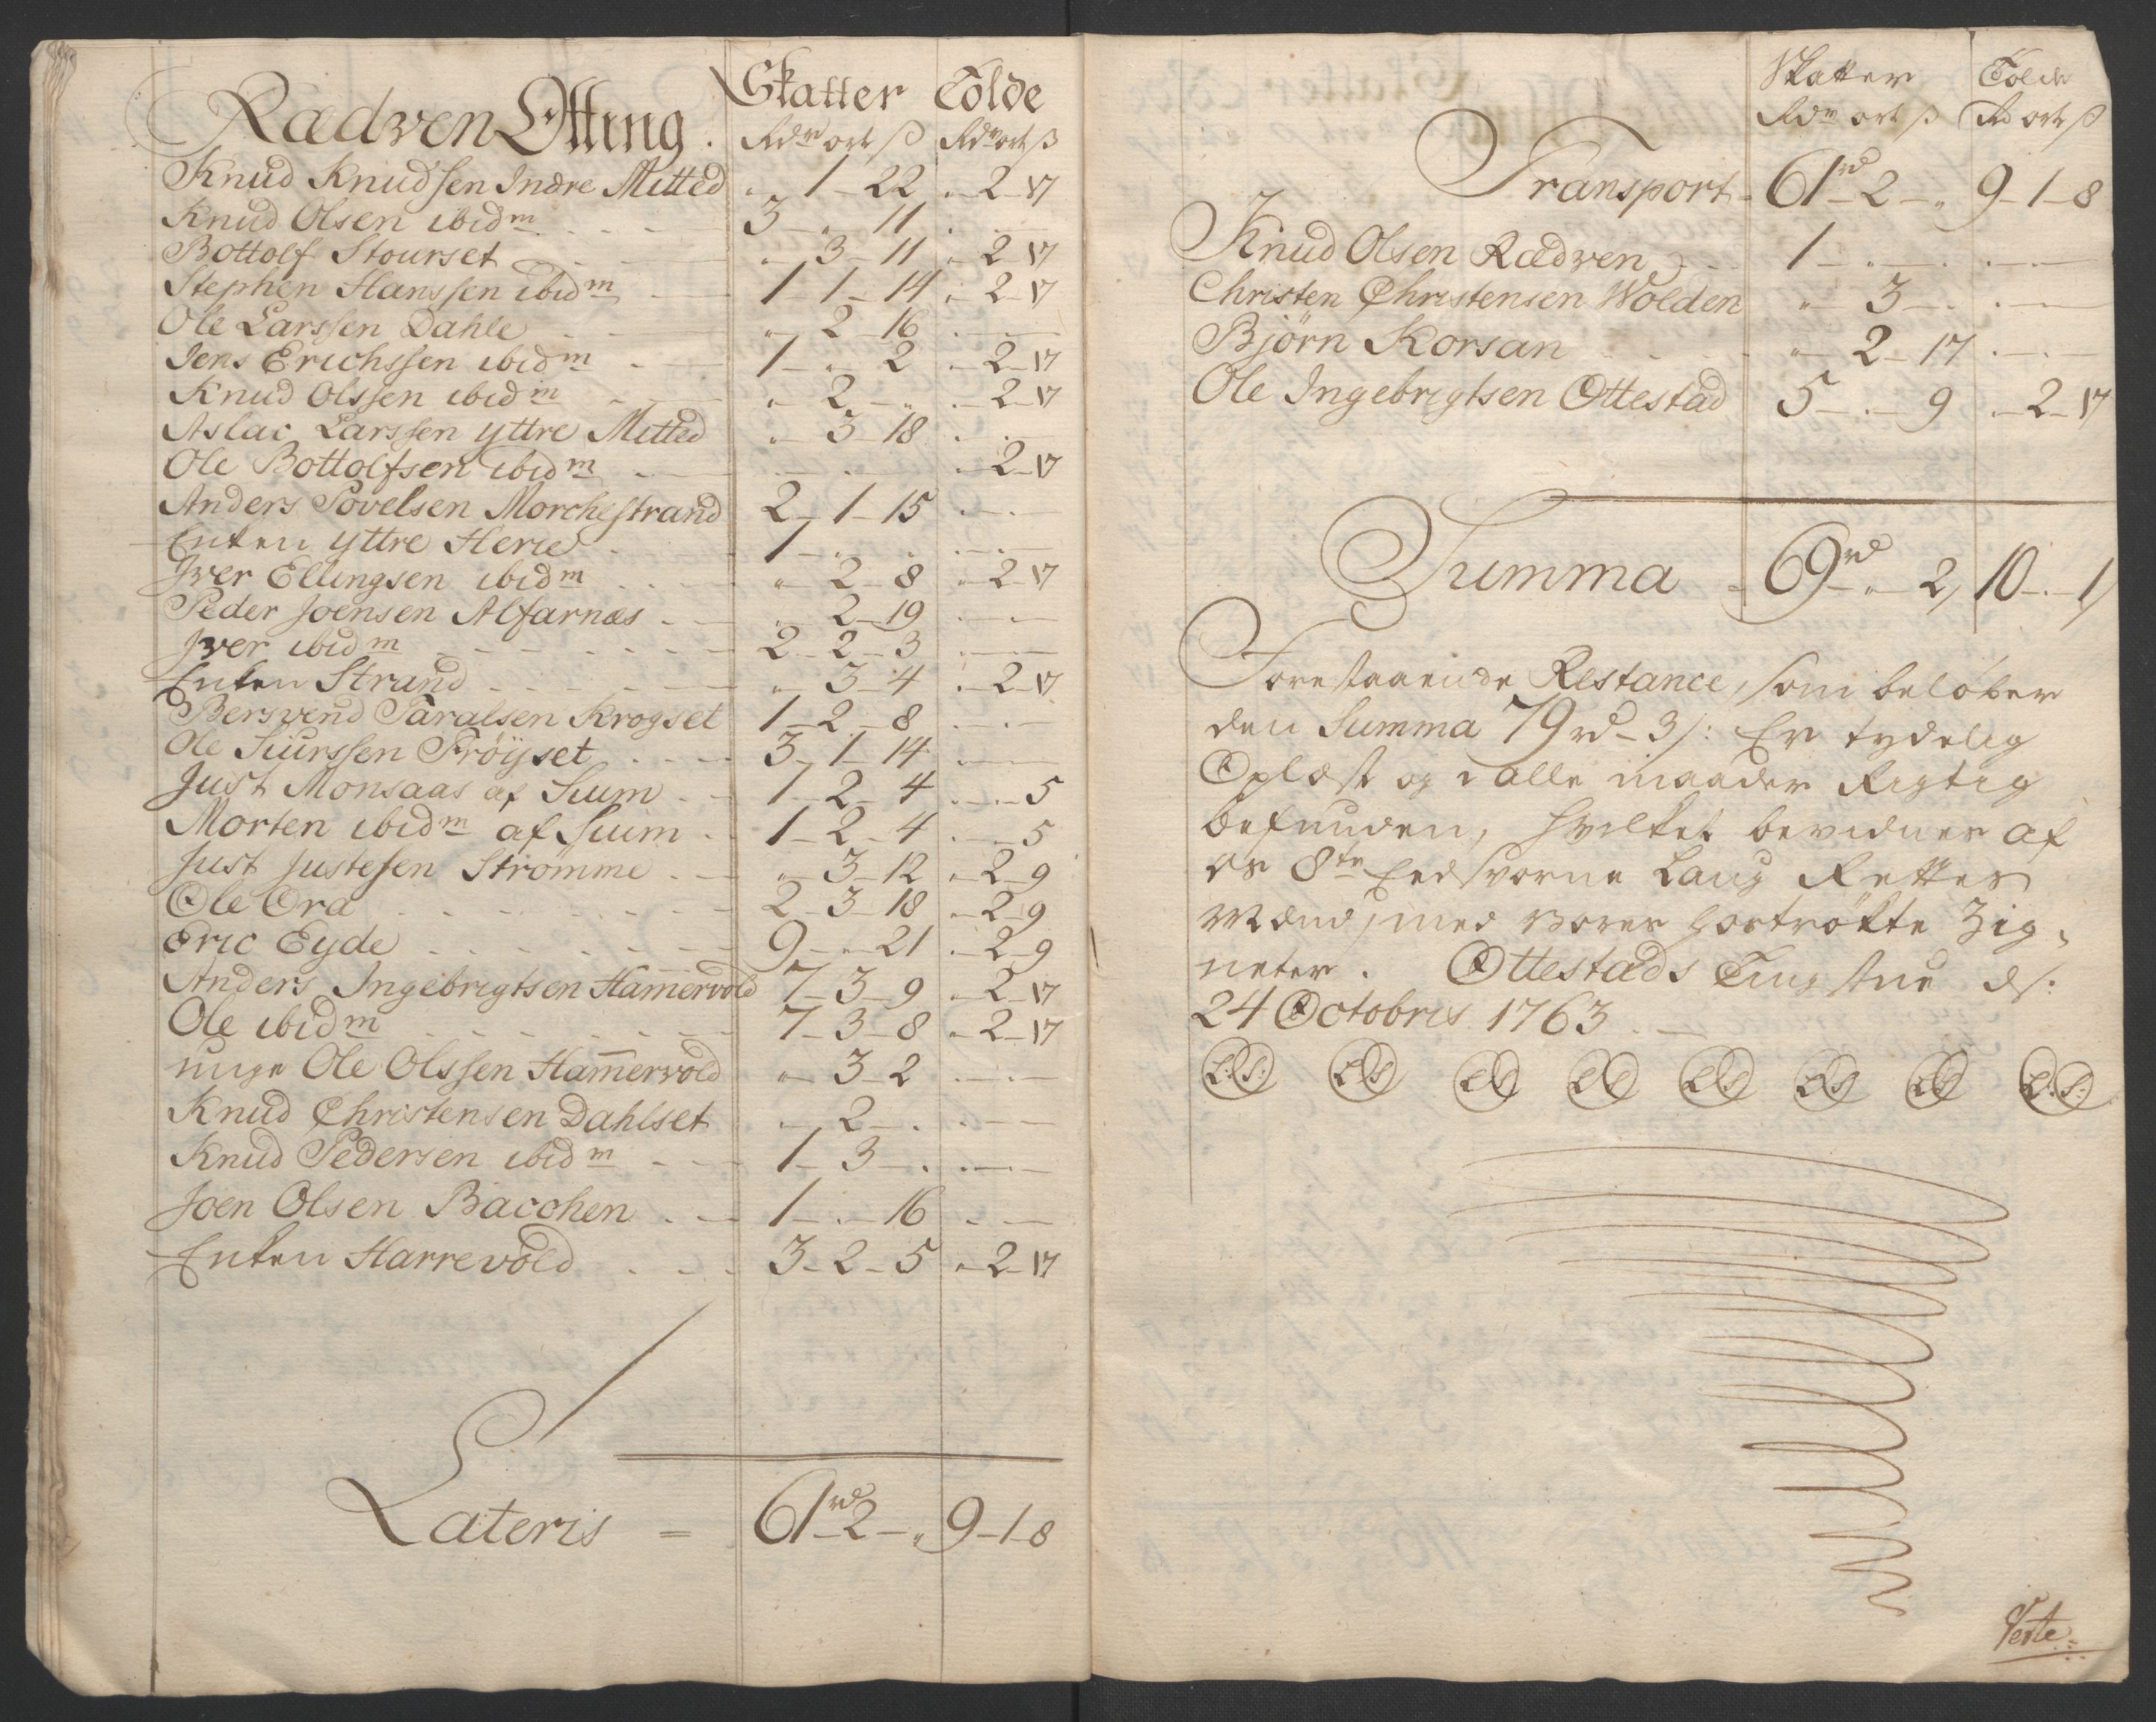 Rædven Otting. Skatter Tolde
Rdr ort ß Rdr ort ß
Knud Knudsen Indre Mitted „ 1 - 22 „ - 2 - 17
Knud Olsen ibidm 3 - „ 11
Bottolf Stourset „ 3 - 11 „ 2 - 17
Stephen Hanssen ibidm 1 - 1 - 14 „ 2 - 17
Ole Larssen Dahle „ 2 - 16
Jens Erichssen ibidm 1 - „ 2 „ 2 - 17
Knud Olssen ibidm „ 2 - „ „ 2 - 17
Aslac Larssen yttre Mitted „ 3 - 18
Ole Bottolfsen ibidm „ 2 - 17
Anders Povelsen Morchestrand 2 - 1 - 15
Enken yttre Herje 1 - „ „
Jver Ellingsen ibidm „ 2 - 8 „ 2 - 17
Peder Joensen Alfarnæs „ 2 - 19
Jver ibidm 2 - 2 - 3
Enken Strand „ 3 - 4 „ 2 - 17
Bersvend Taralsen Krogset 1 - 2 - 8
Ole Siurssen Fröyset 3 - 1 - 14
Just Monsaas af Suum 1 - 2 - 4 - 5
Morten ibidm af Suum 1 - 2 - 4 - 5
Just Justesen Strömme „ 3 - 12 „ 2 - 9
Ole Ora 2 - 3 - 18 „ 2 - 9
Eric Eyde 9 - „ 21 „ 2 - 9
Anders Ingebrigtsen Ham̅ervold 7 - 3 - 9 „ 2 - 17
Ole ibidm 7 - 3 - 8 „ 2 - 17
unge Ole Olssen Ham̅ervold „ 3 - 2
Knud Christensen Dahlset „ 2 - „
Knud Pedersen ibidm 1 - 3 - „
Joen Olsen Bacchen 1 - „ 16
Enken Harrevold 3 - 2 - 5 „ 2 - 17
Lateris = 61rd 2 - „ 9 - 1 - 8
Skatter Tolde
Rdr ort ß Rd ort ß
Transport 61rd 2 - „ 9 - 1 - 8
Knud Olsen Rædven 1 - „ - „
Christen Christensen Wolden „ 3 - „
Björn Korsan „ 2 - 17
Ole Ingebrigtsen Ottestad 5 - „ 9 „ 2 - 17
Summa 69rd - „ 2/ 10 - „ 1/
Forestaaende Restance, som beløber
den Summa 79 rd - 3/: Er tydelig
Oplæst og i alle maader Rigtig
befunden, hvilket bevidner af
os 8te Eedsvorne Laug Rettes
Mænd, med vores hoströkte Zig,
neter. Ottestads Tingstue ds:
24 Octobris 1763.
L:S: LS LS LS LS LS LS L:S:
Verte